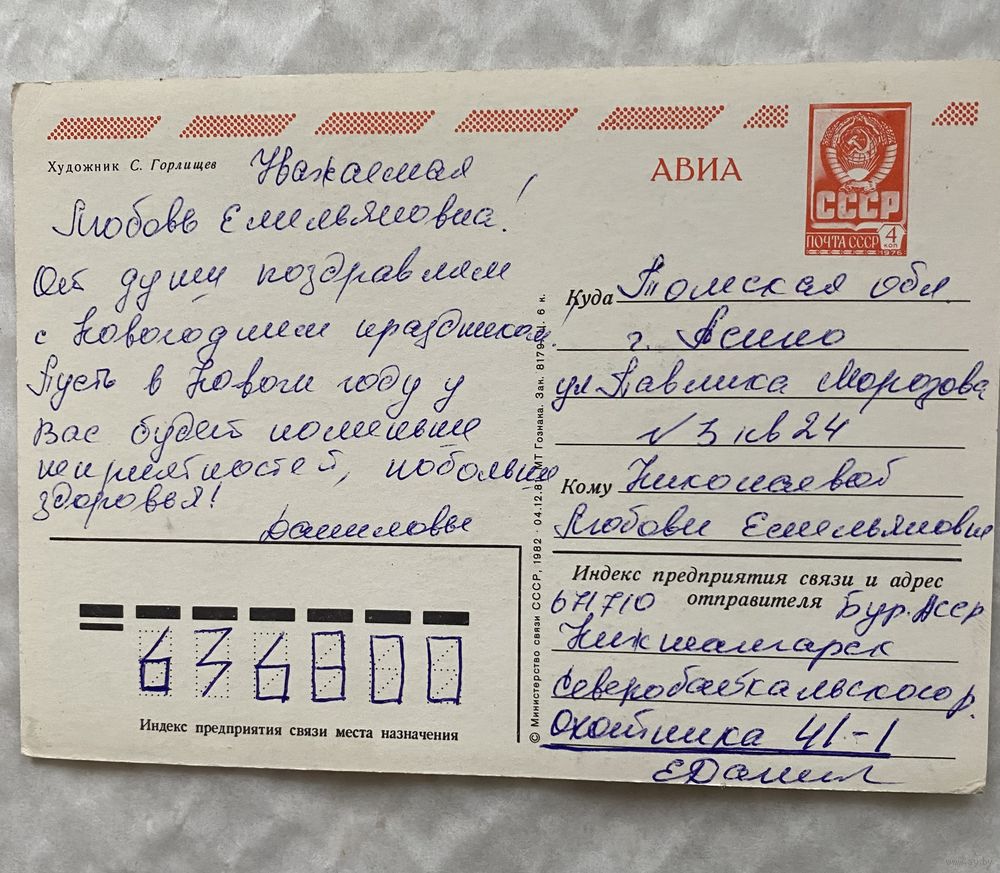 Художник С. Горлищев
Уважаемая
Любовь Емельяновна!
От души поздравляем
с Новогодним праздником!
Пусть в Новом году у
Вас будет поменьше
неприятностей, побольше
здоровья!
Даниловы
АВИА
СССР
ПОЧТА СССР 4 КОП
1976
Куда Томская обл
г. Асино
ул Павлика Морозова
№ 3 кв 24
Кому Николаевой
Любови Емельяновне
Индекс предприятия связи и адрес
отправителя
671710 Бур. Асср
Нижнеангарск
Северобайкальского р.
Охотника 41-1
ЕДанил
636800
Индекс предприятия связи места назначения
© Министерство связи СССР, 1982 · 04.12.81. МТ Гознака. Зак. 6 к.
www.ay.by